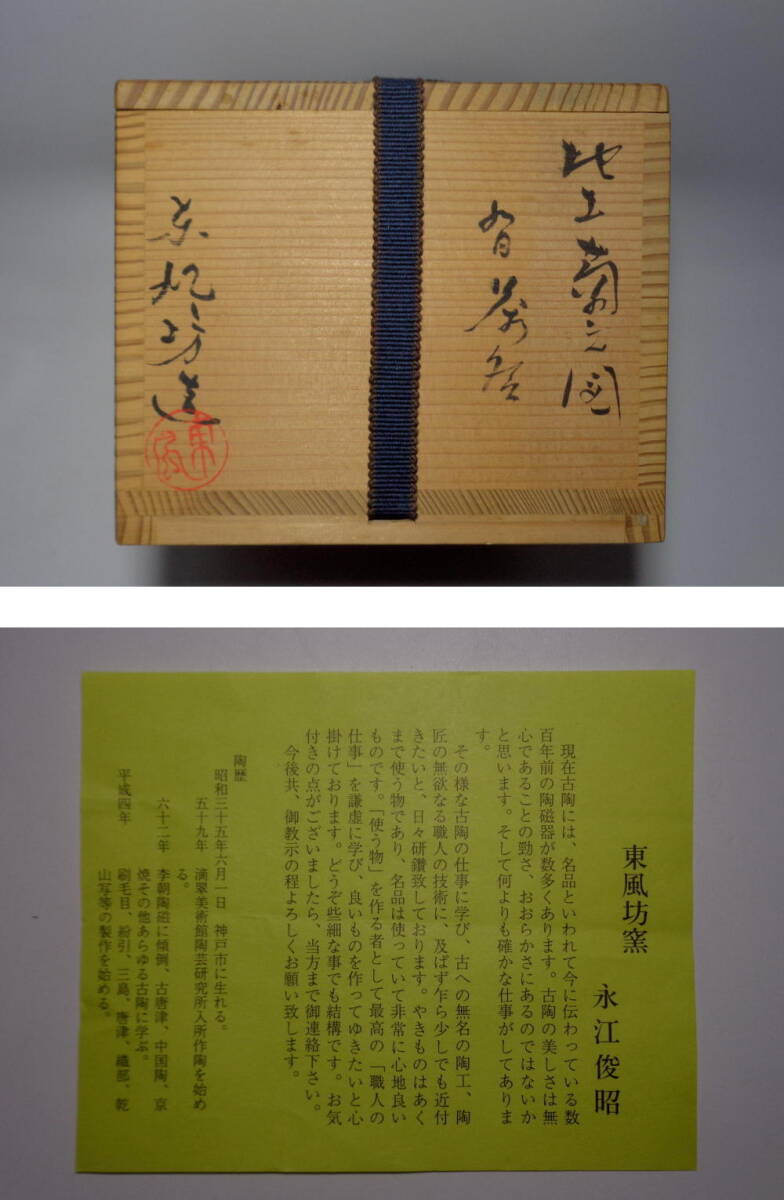 地工菊之図
東風坊造
東風坊窯　永江俊昭
現在古陶には、名品といわれて今に伝わっている数
百年前の陶磁器が数多くあります。古陶の美しさは無
心であることの勁さ、おおらかさにあるのではないか
と思います。そして何よりも確かな仕事がしてありま
す。
その様な古陶の仕事に学び、古への無名の陶工、陶
匠の無欲なる職人の技術に、及ばず乍ら少しでも近付
きたいと、日々研鑽致しております。やきものはあく
まで使う物であり、名品は使っていて非常に心地良い
ものです。「使う物」を作る者として最高の「職人の
仕事」を謙虚に学び、良いものを作ってゆきたいと心
掛けております。どうぞ些細な事でも結構です。お気
付きの点がございましたら、当方まで御連絡下さい。
今後共、御教示の程よろしくお願い致します。
陶歴
昭和三十五年六月一日　神戸市に生れる。
五十九年　滴翠美術館陶芸研究所入所作陶を始め
る。
六十二年　李朝陶磁に傾倒、古唐津、中国陶、京
焼その他あらゆる古陶に学ぶ。
平成四年　刷毛目、粉引、三島、唐津、織部、乾
山写等の製作を始める。